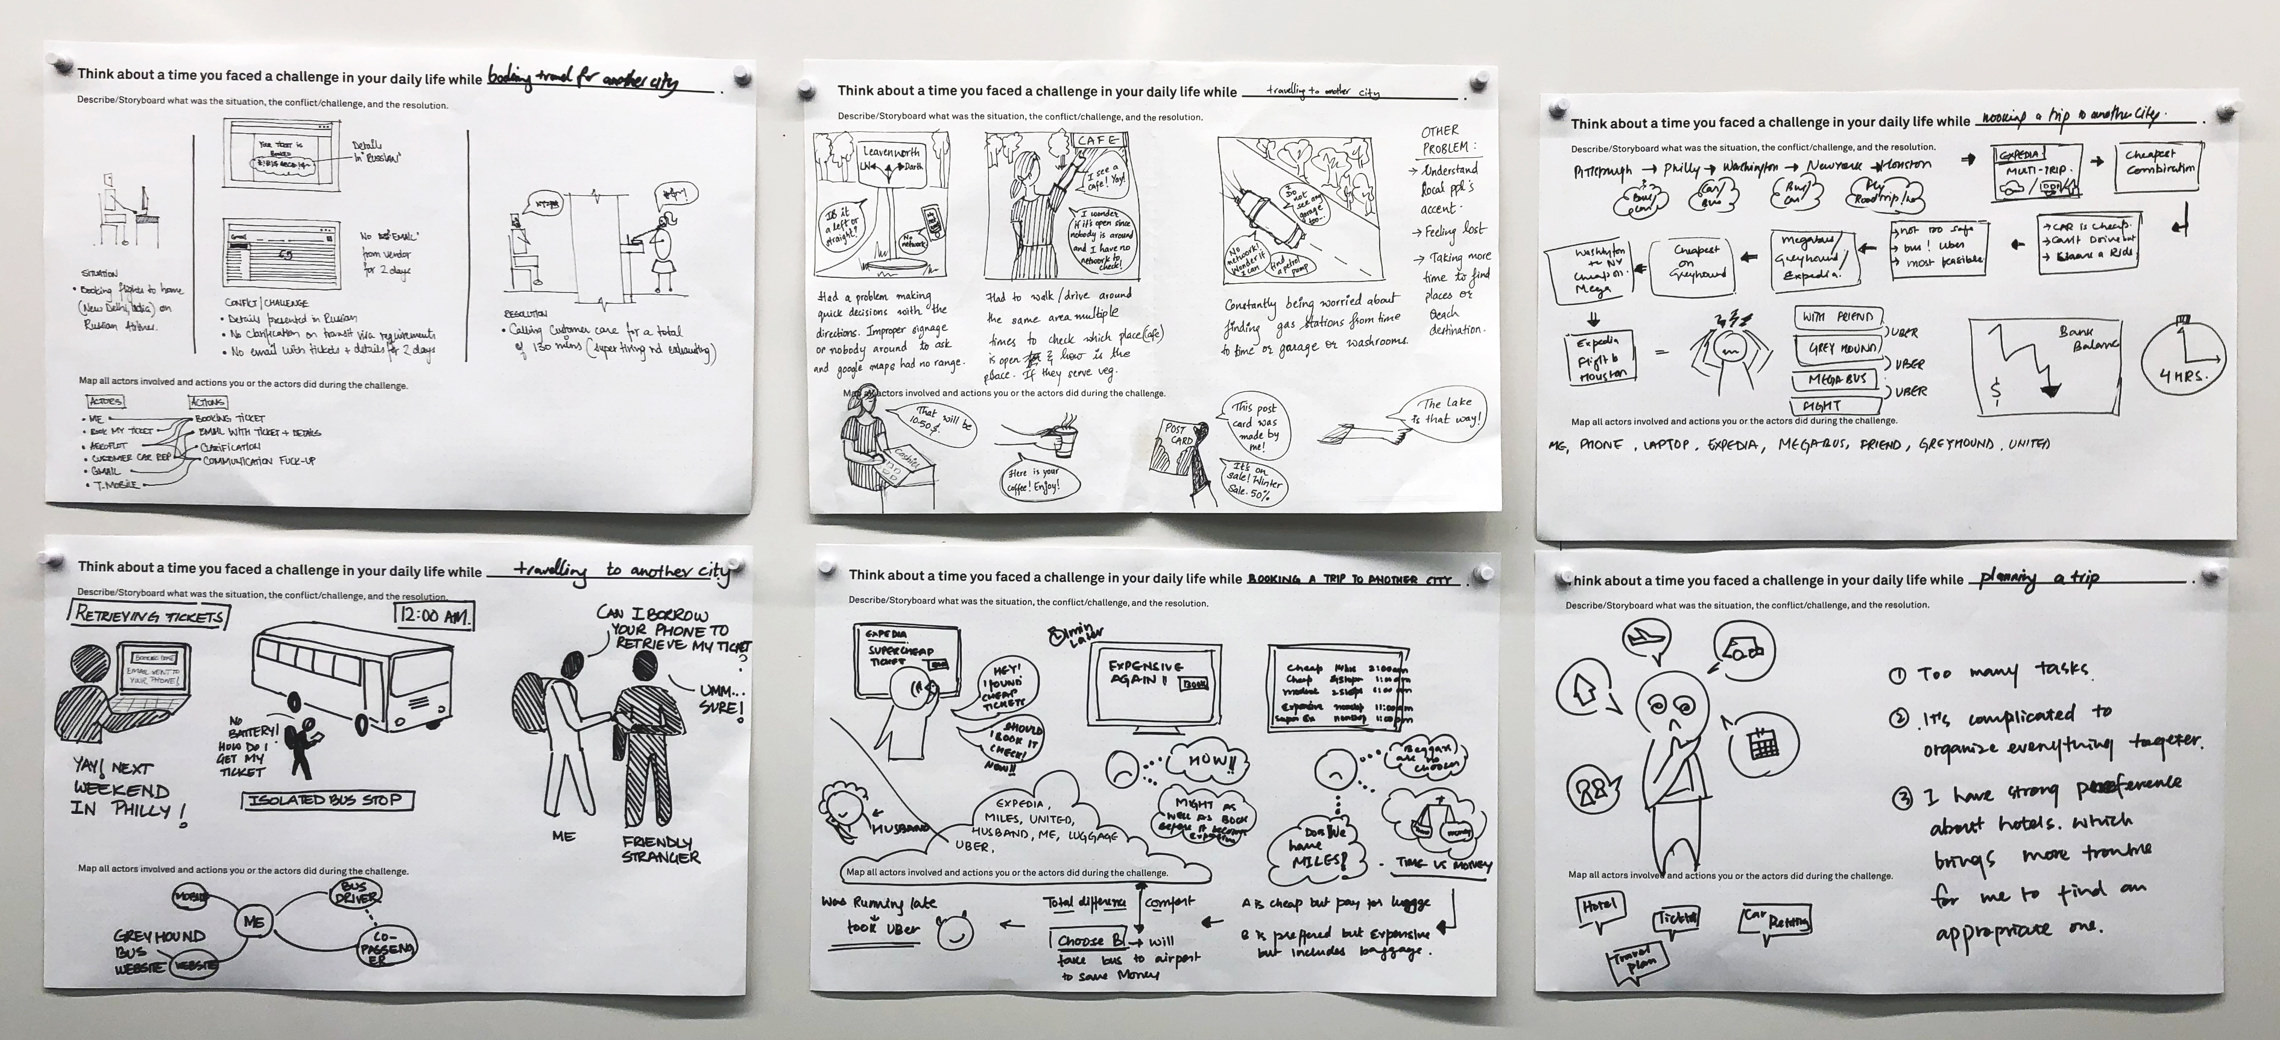 Think about a time you faced a challenge in your daily life while booking travel for another city.
Describe/Storyboard what was the situation, the conflict/challenge, and the resolution.
YOUR TICKET IS BOOKED
Details
in "RUSSIAN"
Gmail
NO EMAIL
from vendor
for 2 days
SITUATION
• Booking flights to home
(New Delhi, India) on
Russian Airlines.
CONFLICT/CHALLENGE
• Details presented in Russian
• No clarification on transit visa requirements
• No email with tickets + details for 2 days
RESOLUTION
• Calling Customer care for a total
of 130 mins (super tiring nd exhausting)
Map all actors involved and actions you or the actors did during the challenge.
ACTORS
ACTIONS
• ME
• BOOK MY TICKET
• AEROFLOT
• CUSTOMER CAR REP
• GMAIL
• T-MOBILE
BOOKING TICKET
EMAIL WITH TICKET + DETAILS
CLARIFICATION
COMMUNICATION FUCK-UP
Think about a time you faced a challenge in your daily life while travelling to another city.
Describe/Storyboard what was the situation, the conflict/challenge, and the resolution.
Leavenworth
Darth
Is it
a left or
straight?
No
network
CAFE
I see a
cafe! Yay!
I wonder
if it's open since
nobody is around
and I have no
network to
check!
I do
not
see any
garage
too...
No
network!
Wonder if I
can
find
a petrol
pump
OTHER
PROBLEM:
→ Understand
local ppl's
accent.
→ Feeling lost
→ Taking more
time to find
places or
reach
destination.
Had a problem making
quick decisions with the
directions. Improper signage
or nobody around to ask
and google maps had no range.
Had to walk/drive around
the same area multiple
times to check which place (cafe)
is open & how is the
place. If they serve veg.
Constantly being worried about
finding gas stations from time
to time or garage or washrooms.
Map all actors involved and actions you or the actors did during the challenge.
That
will be
10.50$!
Cashier
Here is your
coffee! Enjoy!
POST
CARD
This post
card was
made by
me!
It's on
sale! Winter
Sale. 50%
The Lake
is that way!
Think about a time you faced a challenge in your daily life while booking a trip to another city.
Describe/Storyboard what was the situation, the conflict/challenge, and the resolution.
Pittsburgh → Philly → Washington → Newyork → Houston
Car/
Bus
Bus/
Car
Fly
EXPEDIA!
MULTI-TRIP
Cheapest
Combination
→ CAR is Cheap
→ Can't Drive but
→ Share a Ride
→ not too safe
→ bus! Uber
→ most feasible
Megabus/
Greyhound/
Expedia!
Cheapest
on
Greyhound
Washington
to NY
Cheap on
Mega
Expedia
Flight to
Houston
=
WITH FRIEND
GREY HOUND
MEGA BUS
FLIGHT
UBER
UBER
UBER
Bank
Balance
$
4 HRS.
Map all actors involved and actions you or the actors did during the challenge.
ME, PHONE, LAPTOP, EXPEDIA, MEGABUS, FRIEND, GREYHOUND, UNITED
Think about a time you faced a challenge in your daily life while travelling to another city
Describe/Storyboard what was the situation, the conflict/challenge, and the resolution.
RETRIEVING TICKETS
12:00 AM.
EMAIL SENT TO
YOUR PHONE!
YAY! NEXT
WEEKEND
IN PHILLY!
NO
BATTERY!
HOW DO I
GET MY
TICKET
ISOLATED BUS STOP
CAN I BORROW
YOUR PHONE TO
RETRIEVE MY TICKET
?
UMM...
SURE!
ME
FRIENDLY
STRANGER
Map all actors involved and actions you or the actors did during the challenge.
MOBILE
ME
BUS
DRIVER
CO-
PASSENG
ER
GREYHOUND
BUS
WEBSITE
WEBSITE
Think about a time you faced a challenge in your daily life while BOOKING A TRIP TO ANOTHER CITY.
Describe/Storyboard what was the situation, the conflict/challenge, and the resolution.
EXPEDIA
SUPERCHEAP
TICKET
HEY!
I FOUND
CHEAP
TICKETS
SHOULD
I BOOK IT
CHECK!
NOW!!
1min
Later
EXPENSIVE
AGAIN!
BOOK
HOW!!
MIGHT AS
WELL AS BOOK
BEFORE IT BECOMES
EXPENSIVE
Cheap
Cheap
Expensive nonstop 11:00am
Super Ex nonstop
Beggars
are no
choosers
Do we
have
MILES?
money
- TIME VS MONEY
HUSBAND
EXPEDIA,
MILES, UNITED,
HUSBAND, ME, LUGGAGE
UBER.
Map all actors involved and actions you or the actors did during the challenge.
Was Running late
took UBER
Total difference
comfort
Choose B! → will
take bus to airport
to save Money
A is cheap but pay for luggage
B is preffered but Expensive
but includes baggage.
Think about a time you faced a challenge in your daily life while planning a trip.
Describe/Storyboard what was the situation, the conflict/challenge, and the resolution.
① Too many tasks.
② It's complicated to
organize everything togeter.
③ I have strong preference
about hotels. which
brings more trouble
for me to find an
appropriate one.
Map all actors involved and actions you or the actors did during the challenge.
Hotel
Ticket
Car
Renting
Travel
plan